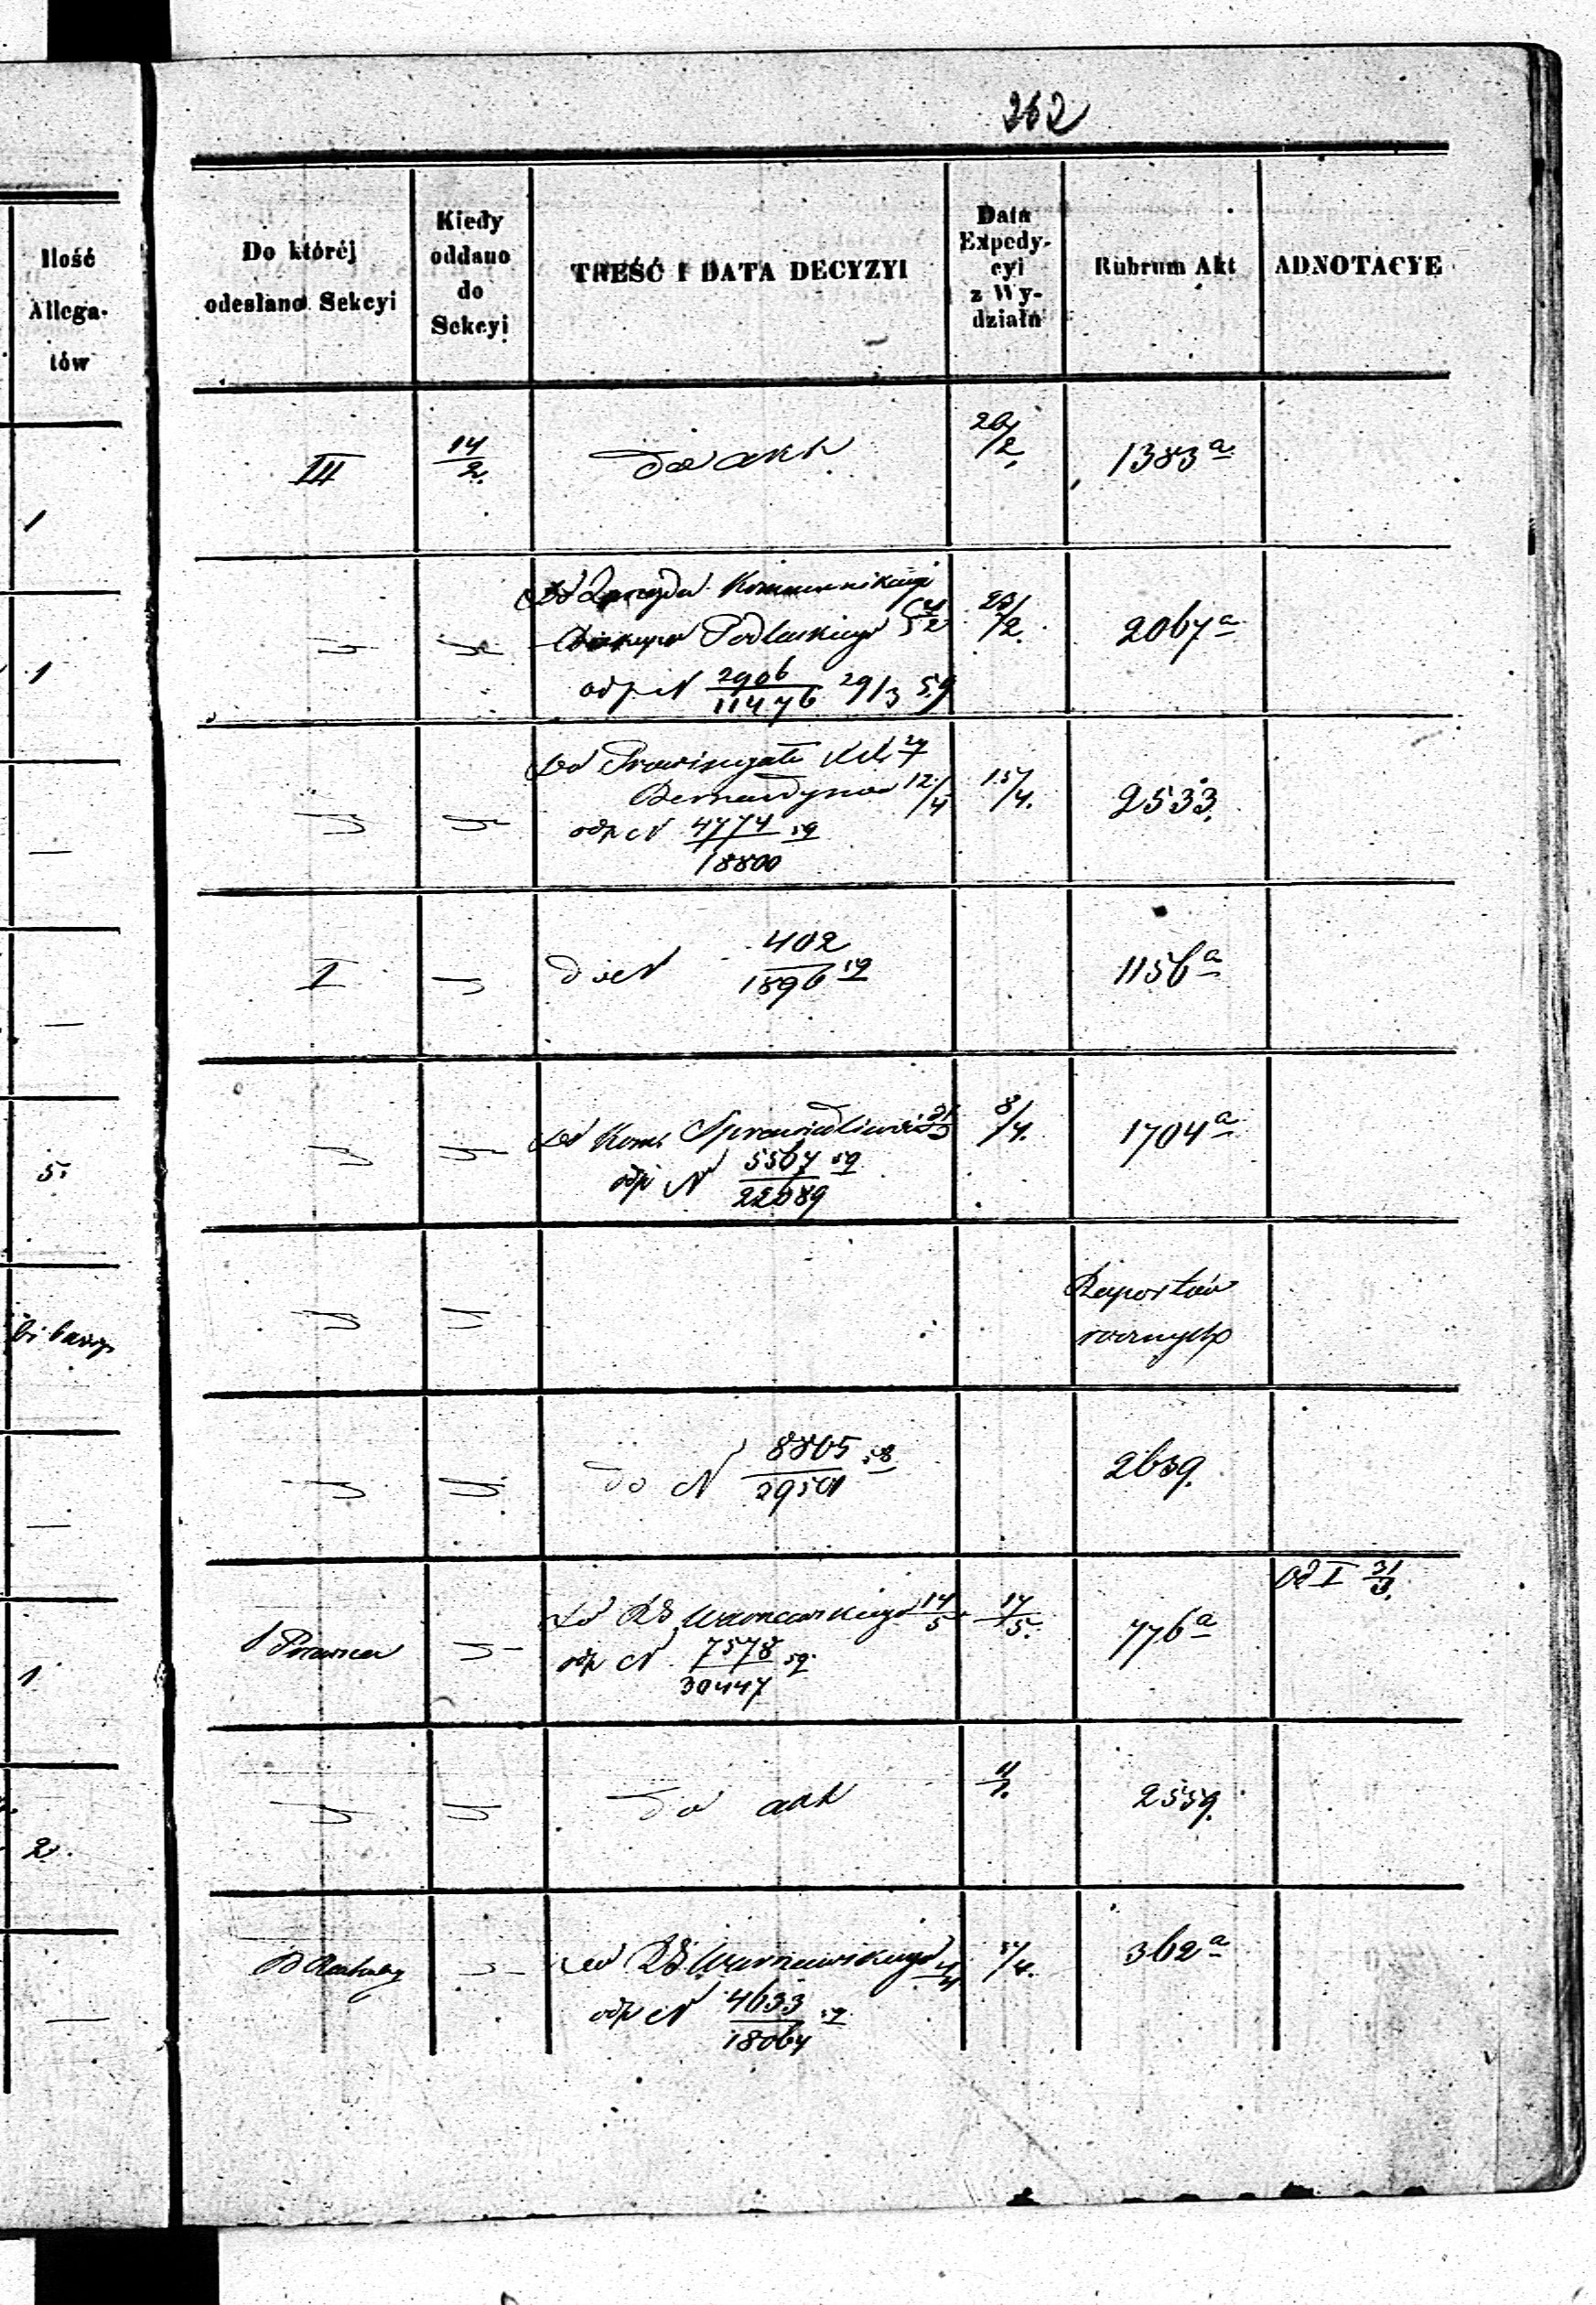 262
Ilość
Allega-
tów
Do któréj
odesłano Sekcyi
Kiedy
oddano
do
Sekcyi
TREŚĆ I DATA DECYZYI
Data
Expedy-
cyi
z Wy-
działu
Rubrum Akt
ADNOTACYE
1
III
14/2
do akt
26/2
1383 a
1
Do Zarządu Kommunikacyi
Podlaskiego
odp N 2906/11476 29/3 59
23/2
2067 a
—
Do
Bernardynów 12/4
odp N 4774/18800 59
15/4
2533
—
I
do N 402/1896 59
1156 a
5
Do Kom. Sprawiedliwości
odp N 5567/22089 59
8/4
1704 a
Raportów
rocznych
—
do N 8805/29501 58
2639
1
Prawna
Do RG Warszawskiego 14/5
odp N 7578/30447 59
17/5
776 a
od I 31/3
2
do akt
2559
—
Do RG Warszawskiego
odp N 4633/18064 59
362 a